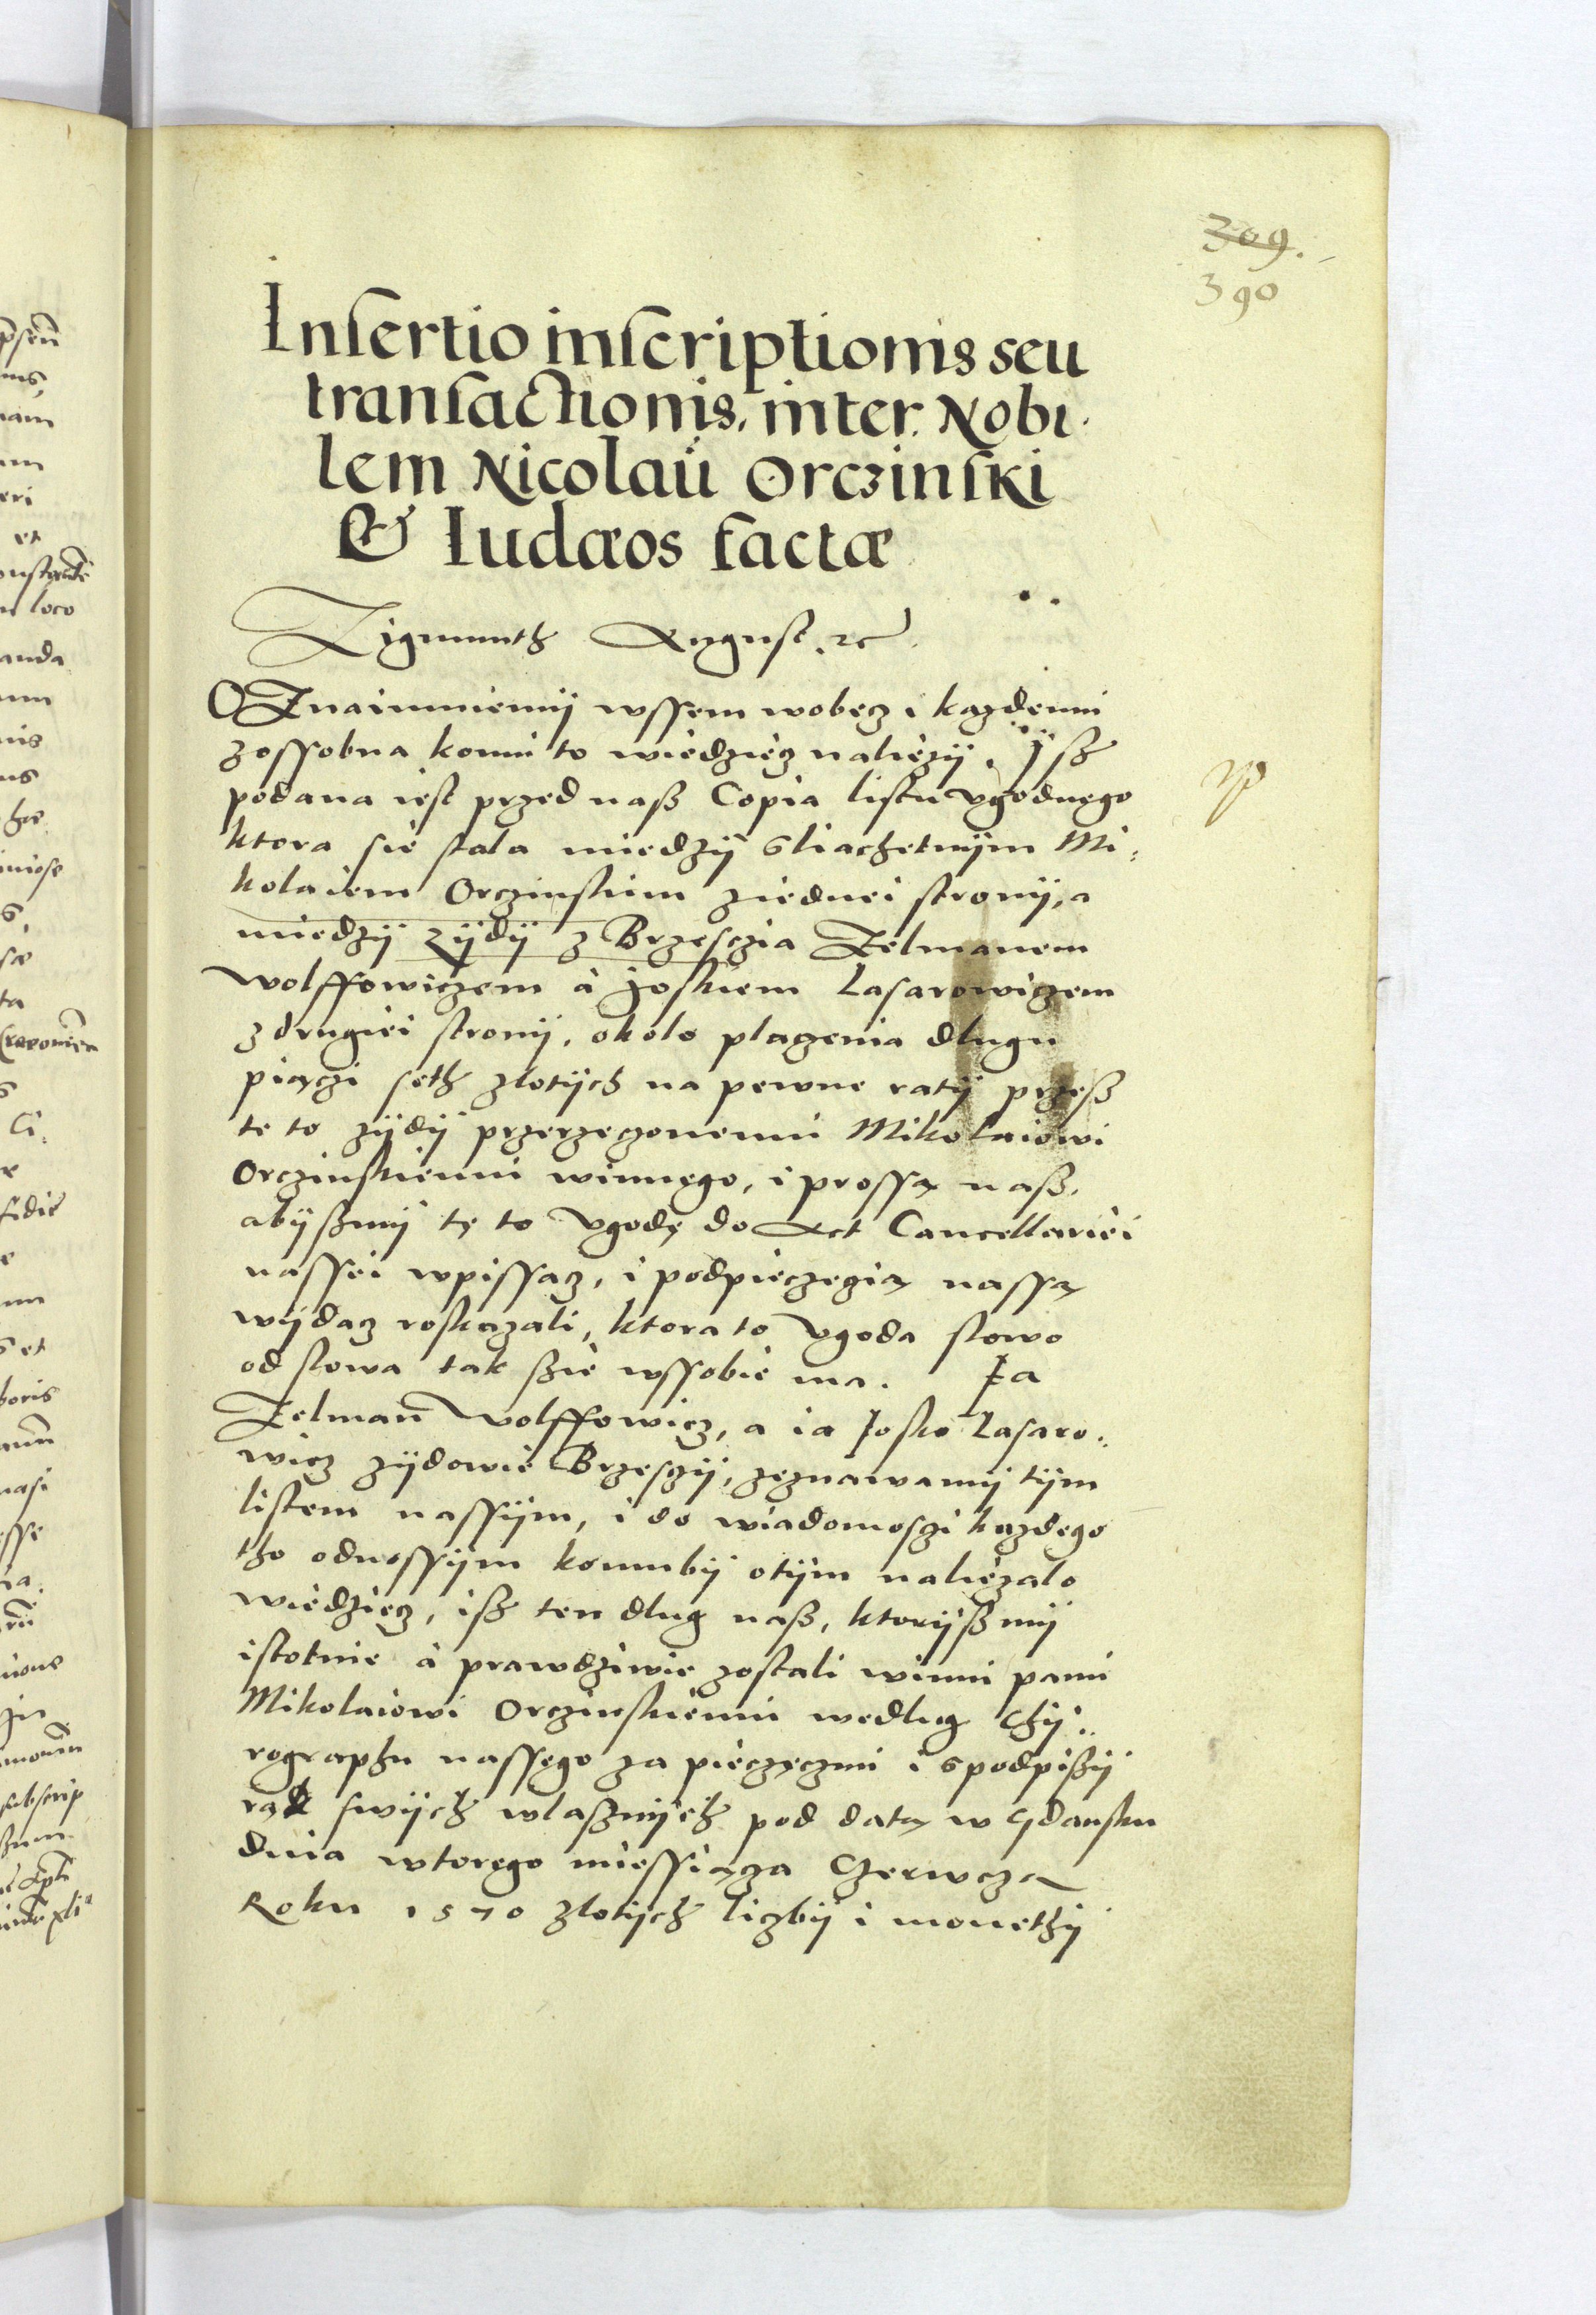 309.
390
Insertio inscriptionis seu
transactionis, inter Nobi
lem Nicolaū Orczinski
& Iudæos factæ
Zigmunth August. &c
OZnaimuiemÿ wssem wobęcz i kazdemu
zossobna komu to wiedzięcz nalieżÿ, Jsz
podana iest przed nasz Copia listu vgodnego
ktora sie stala międzÿ Sliachetnÿm Mi,
kolaiem Orczinskim ziednei stronÿ, a
międzÿ zÿdÿ z Brzesczia Zelmanem
Wolffowiczem á Joskiem Lasarowiczem
z drugiei stronÿ, okolo placzenia dlugu
piączi seth zlotÿch na pewne ratÿ przesz
te to zÿdÿ przerzeczonemu Mikolaiowi
Orczinskiemu winnęgo, i prossą nasz,
abÿszmÿ tę to vgodę do Act Cancellariei
nassei wpissacz, i podpieczęczią nassą
wÿdacz roskazali, ktora to vgoda slowo
od slowa tak szie wssobie ma. Ja
Zelman Wolffowicz, a ia Josko Lasaro,,
wicz zÿdowie Brzesczÿ, zeznawamÿ tÿm
listem nassÿm, i do wiadomosczi kazdęgo
tho odnossÿm komubÿ otÿm nalieżalo
wiedziecz, isz ten dlug nasz, ktorÿszmÿ
istotnie á prawdziwie zostali winni panu
Mikolaiowi Orczinskiemu wedlug Chÿ,,
rographu nassęgo za pieczęczmi i spodpiszÿ
rąk swÿch wlasznÿch pod datą w Gdansku
dnia wtoręgo miessiącza Czerwcza
Roku 1570 zlotÿch liczbÿ i monethÿ